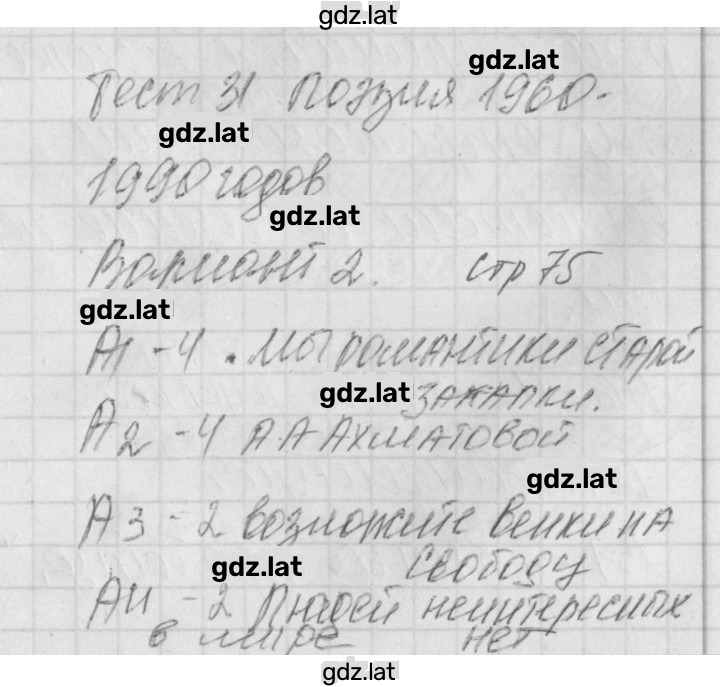 gdz.lat
gdz.lat
Тест 31 Поэзия 1960-
gdz.lat
1990 годов
gdz.lat
Вариант 2. стр 75
gdz.lat
А1 - 4. Мы романтики старой
gdz.lat закалки.
А2 - 4 А А Ахматовой
gdz.lat
А3 - 2 возложите венки на
gdz.lat свободу
А4 - 2 Людей неинтересных
в мире нет
gdz.lat